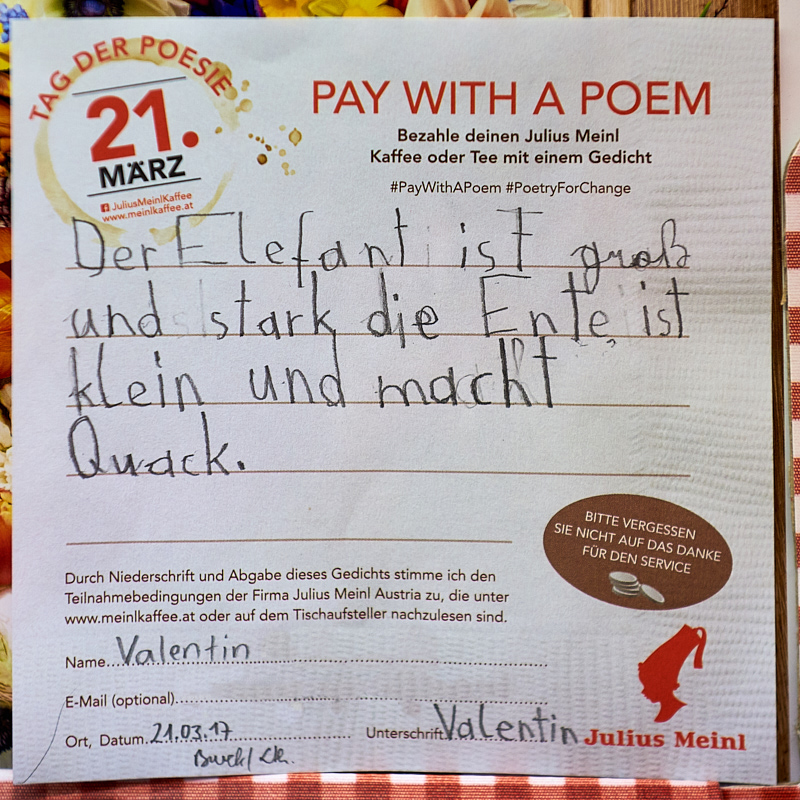 TAG DER POESIE
21.
MÄRZ
JuliusMeinlKaffee
www.meinlkaffee.at
PAY WITH A POEM
Bezahle deinen Julius Meinl
Kaffee oder Tee mit einem Gedicht
#PayWithAPoem #PoetryForChange
Der Elefant ist groß
und stark die Ente ist
klein und macht
Quack.
BITTE VERGESSEN
SIE NICHT AUF DAS DANKE
FÜR DEN SERVICE
Durch Niederschrift und Abgabe dieses Gedichts stimme ich den
Teilnahmebedingungen der Firma Julius Meinl Austria zu, die unter
www.meinlkaffee.at oder auf dem Tischaufsteller nachzulesen sind.
Name Valentin
E-Mail (optional)
Ort, Datum 21.03.17 Unterschrift Valentin
Julius Meinl